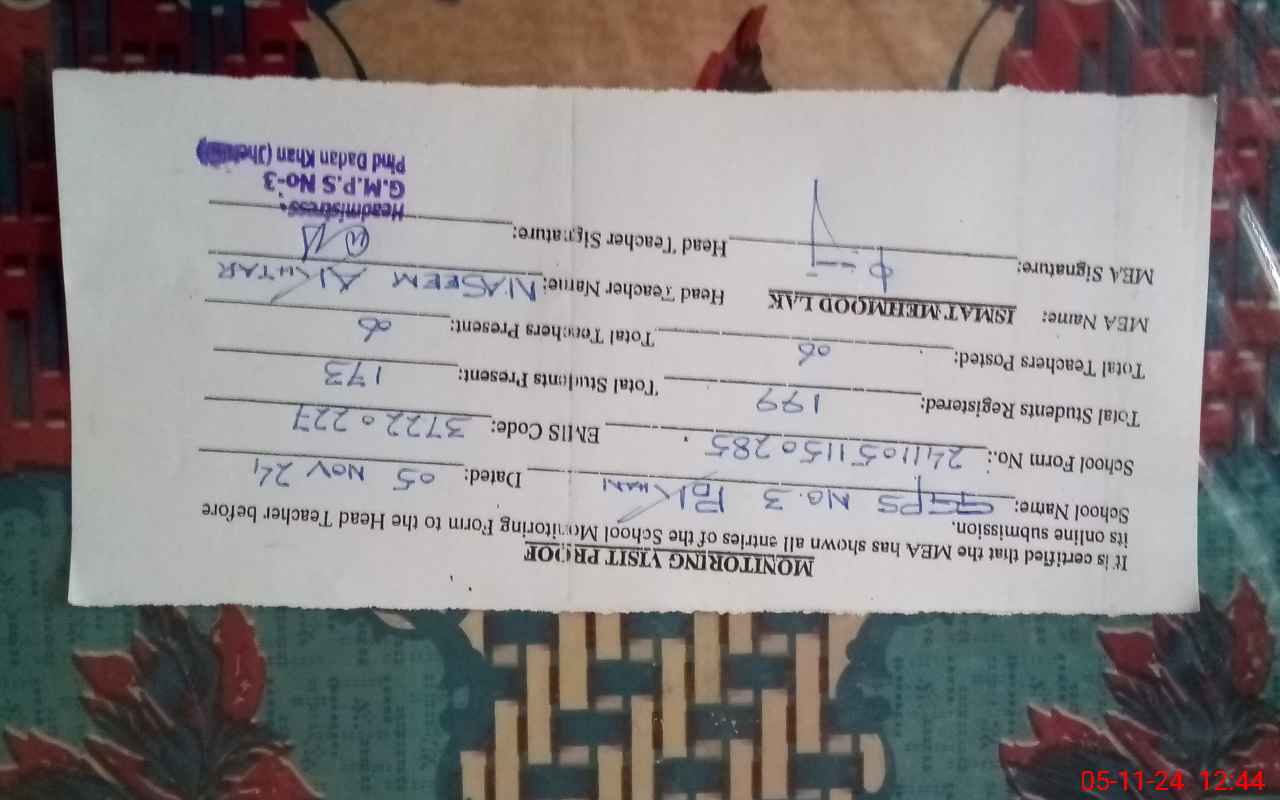 MONITORING VISIT PROOF
It is certified that the MEA has shown all entries of the School Monitoring Form to the Head Teacher before
its online submission.
School Name: GGPS No. 3 PDKHAN Dated: 05 NOV 24
School Form No.: 2411051150285 EMIS Code: 37220227
Total Students Registered: 199 Total Students Present: 173
Total Teachers Posted: 06 Total Teachers Present: 06
MEA Name: ISMAT MEHMOOD LAK Head Teacher Name: NASEEM AKHTAR
MEA Signature: Head Teacher Signature:
Headmistress
G.M.P.S No-3
Pind Dadan Khan (Jhelum)
05-11-24 12:44